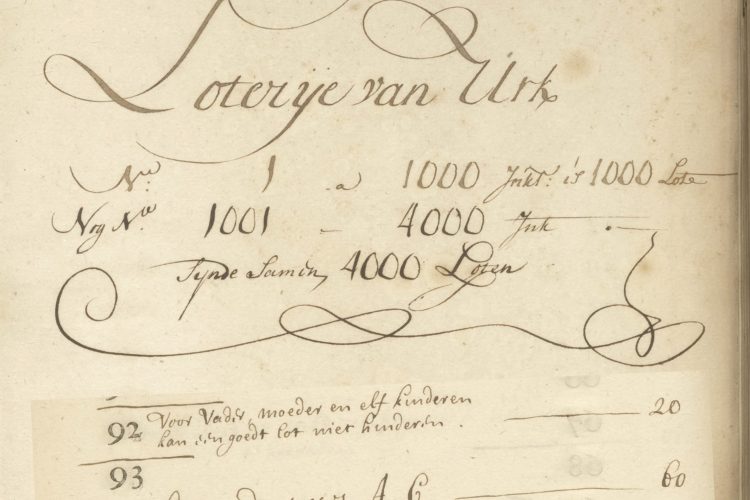 Loterije van Urk
No. 1 a 1000 Inkt. is 1000 Lote
Nog No. 1001 - 4000 Ink
Synde Samen 4000 Loten
92 Voor Vader, moeder en elf kinderen 20
kan een goedt lot niet hinderen.
93 60